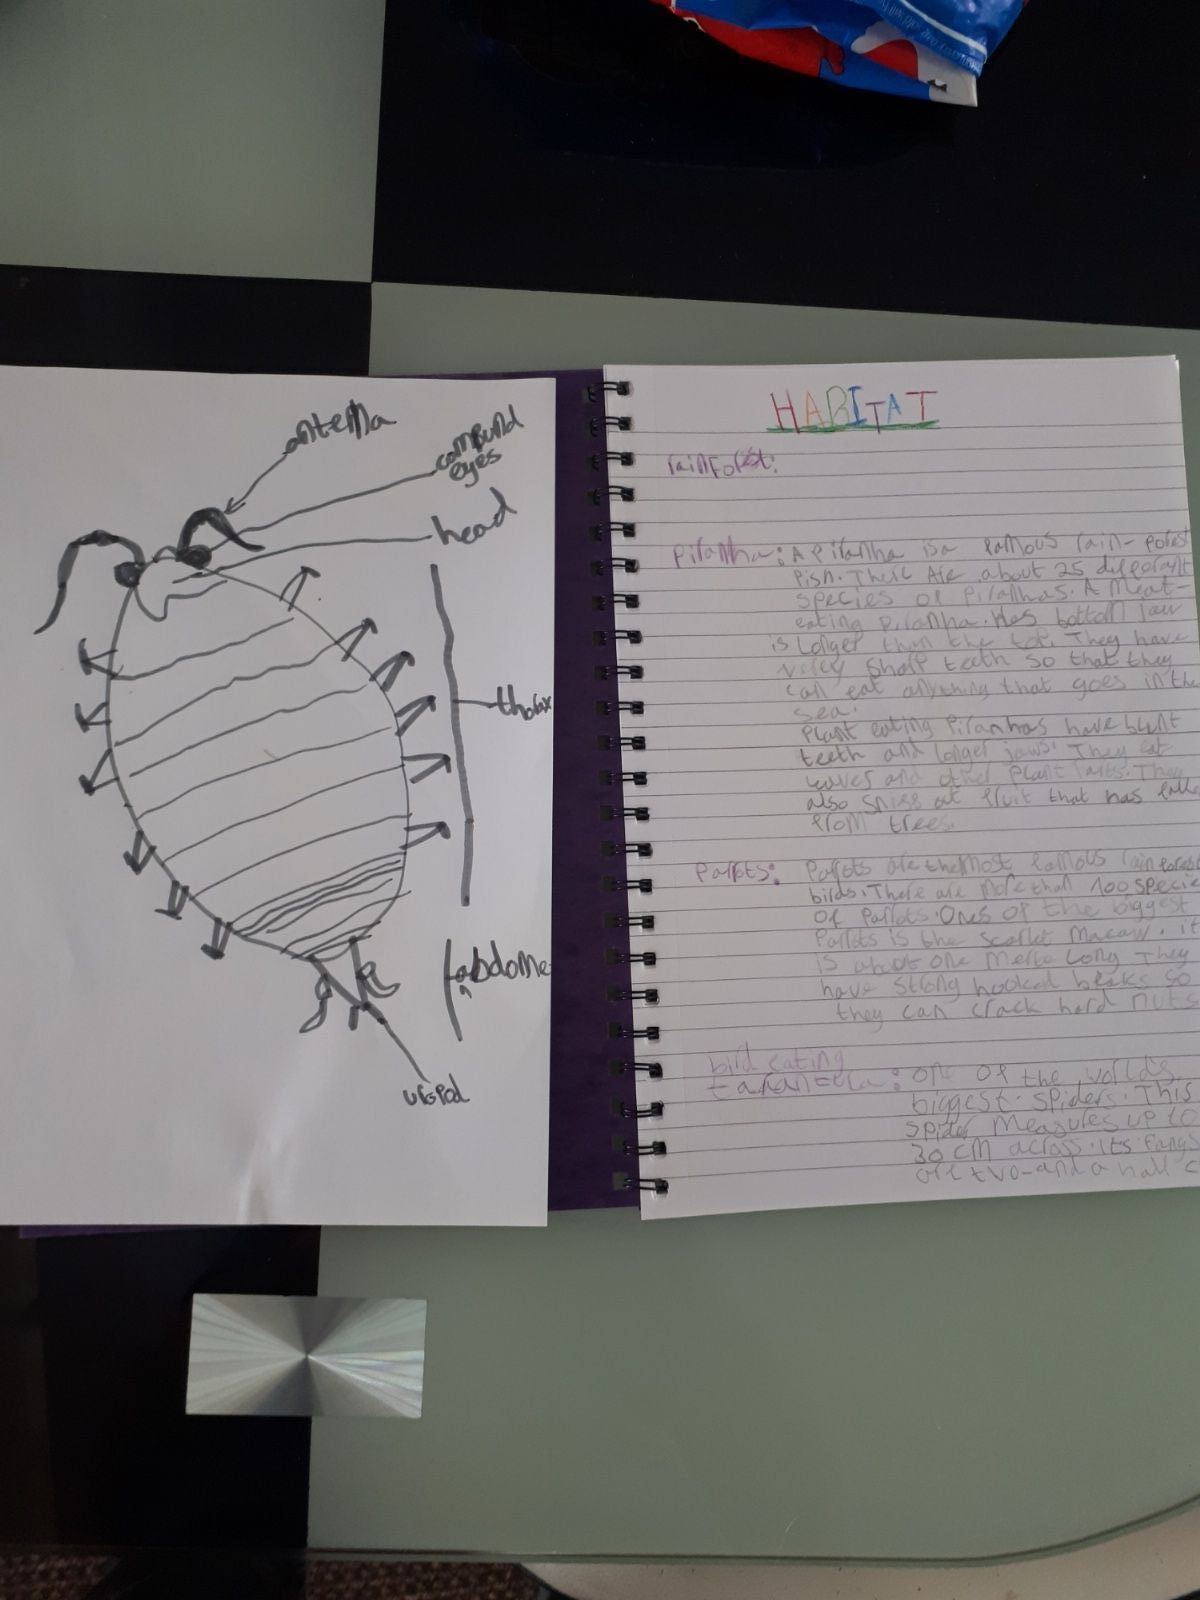 antenna
compund
eyes
head
thorax
abdome
uropod
HABITAT
rainforest:
Piranha: A Piranha is a famous rain-forest
Fish. There Are about 25 differant
species of Piranhas. A Meat-
eating Piranha. Hes bottom Jaw
is Longer than the top. They have
very sharp teeth so that they
can eat anything that goes in the
sea.
Plant eating Piranhas have blunt
teeth and longer jaws. They eat
leaves and other Plant Parts. They
also at fruit that has falle
from trees.
Parrots: Parrots are the most famous rainforest
birds. There are more than 100 specie
of Parrots. Ones of the biggest
Parrots is the Scarlet Macaw. it
is about one Metre Long They
have strong hooked beaks so
they can crack hard nuts
bird eating
tarantula: one of the worlds
biggest. spiders. This
spider Measures up to
30 cm across. its fangs
are two-and a half c